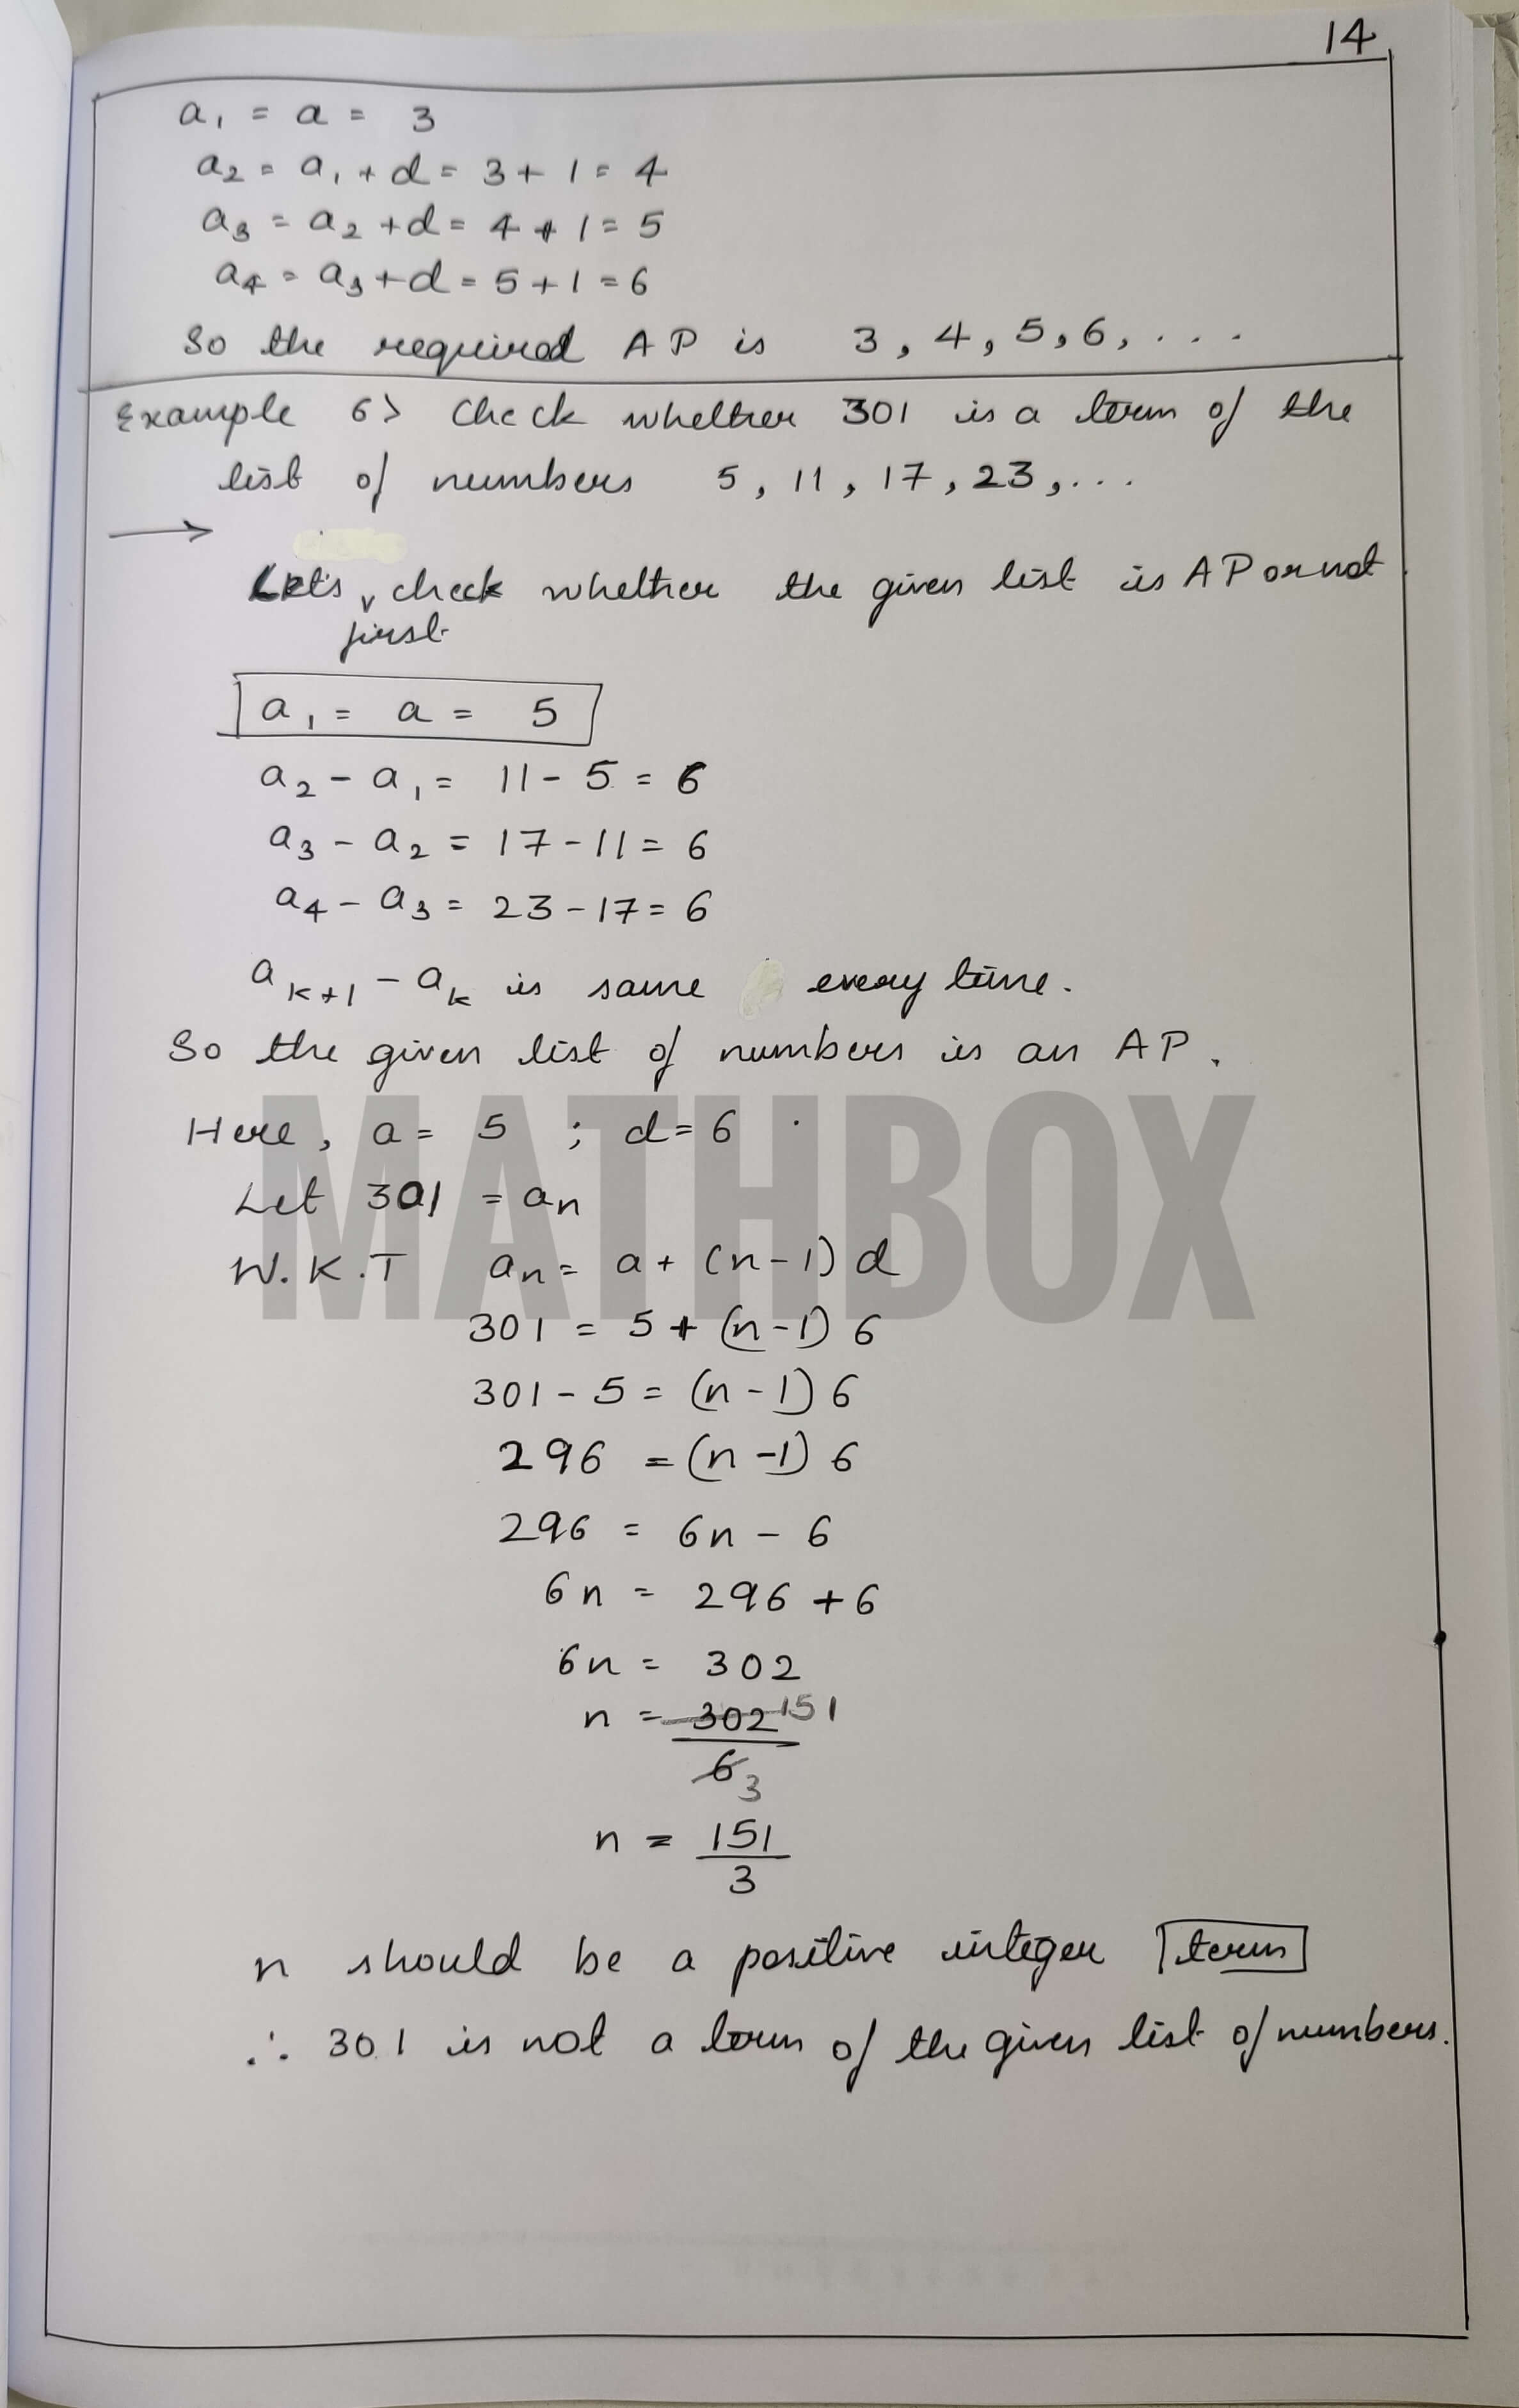 14
a₁ = a = 3
a₂ = a₁ + d = 3 + 1 = 4
a₃ = a₂ + d = 4 + 1 = 5
a₄ = a₃ + d = 5 + 1 = 6
So the required AP is 3, 4, 5, 6, . . .
Example 6> Check whether 301 is a term of the
list of numbers 5, 11, 17, 23, . . .
→
Let's, check whether the given list is AP or not.
first
a₁ = a = 5
a₂ - a₁ = 11 - 5 = 6
a₃ - a₂ = 17 - 11 = 6
a₄ - a₃ = 23 - 17 = 6
aₖ₊₁ - aₖ is same every time.
So the given list of numbers is an AP.
Here, a = 5 ; d = 6
Let 301 = aₙ
W.K.T aₙ = a + (n-1) d
301 = 5 + (n-1) 6
301 - 5 = (n-1) 6
296 = (n-1) 6
296 = 6n - 6
6n = 296 + 6
6n = 302
n = 302 151
6 3
n = 151
3
n should be a positive integer term
∴ 301 is not a term of the given list of numbers.
MATHBOX